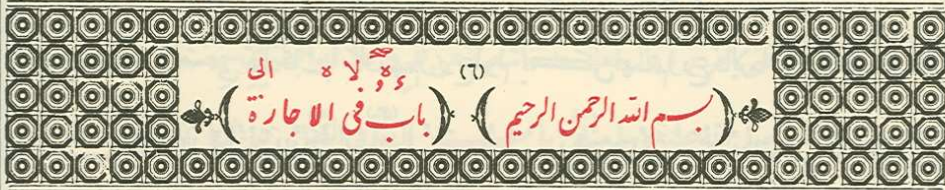 (٦)
(بسم الله الرحمن الرحيم) (باب فى الاجارة)
الى